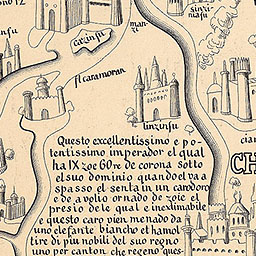 cazinfu
manzi
sinzi
nifu
fl caramoran
linzinfu
cian
CH
Questo excellentissimo e po-
tentissimo imperador el qual
ha IX zoe 60 re de corona sotto
el suo dominio quando el va a
spasso el senta in un caro doro
e de avolio ornado de zoie el
presio dele qual e inextimabile
e questo caro vien menado da
uno elefante biancho et ha
tire di piu nobili del suo regno
uno per canton che regeno ques-